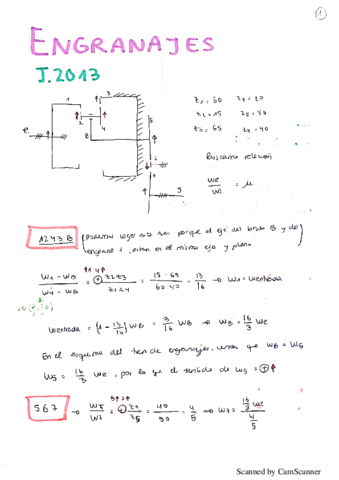 1
ENGRANAJES
J.2013
1
3
2
4
B
5
6
7
e
S
Z1 = 60 Z5 = 20
Z2 = 15
Z3 = 65 Z7 = 40
Buscamos relación
We / Ws = μ
1243 B (Podemos coger este tren porque el eje del brazo B y del
engrane 1, están en el mismo eje y plano
W1 - WB / W4 - WB = + Z2 Z3 / Z1 Z4 = 15 · 65 / 60 · = 13 / 16 → W1 = Wentrada
Wentrada = (1 - 13/16) WB = 3/16 WB → WB = 16/3 We
En el esquema del tren de engranajes, vemos que WB = W5
W5 = 16/3 We, por lo que el sentido de W5 = +
567 → W5 / W7 = + Z7 / Z5 = 40 / = 4 / 5 → W7 = 16/3 We / 4/5
Scanned by CamScanner